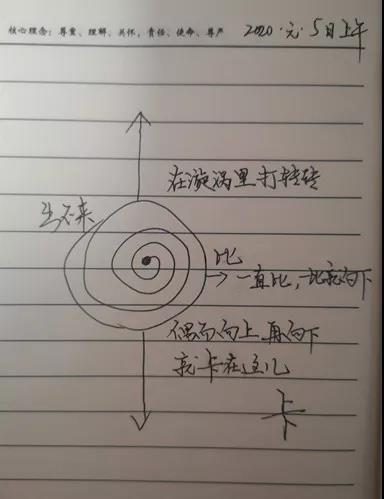 核心理念：尊重、理解、关怀，责任、使命、尊严
2020.元.5日上午
在漩涡里打转转
出不来
比
一直比，一比就向下
偶而向上 再向下
就卡在这儿
卡